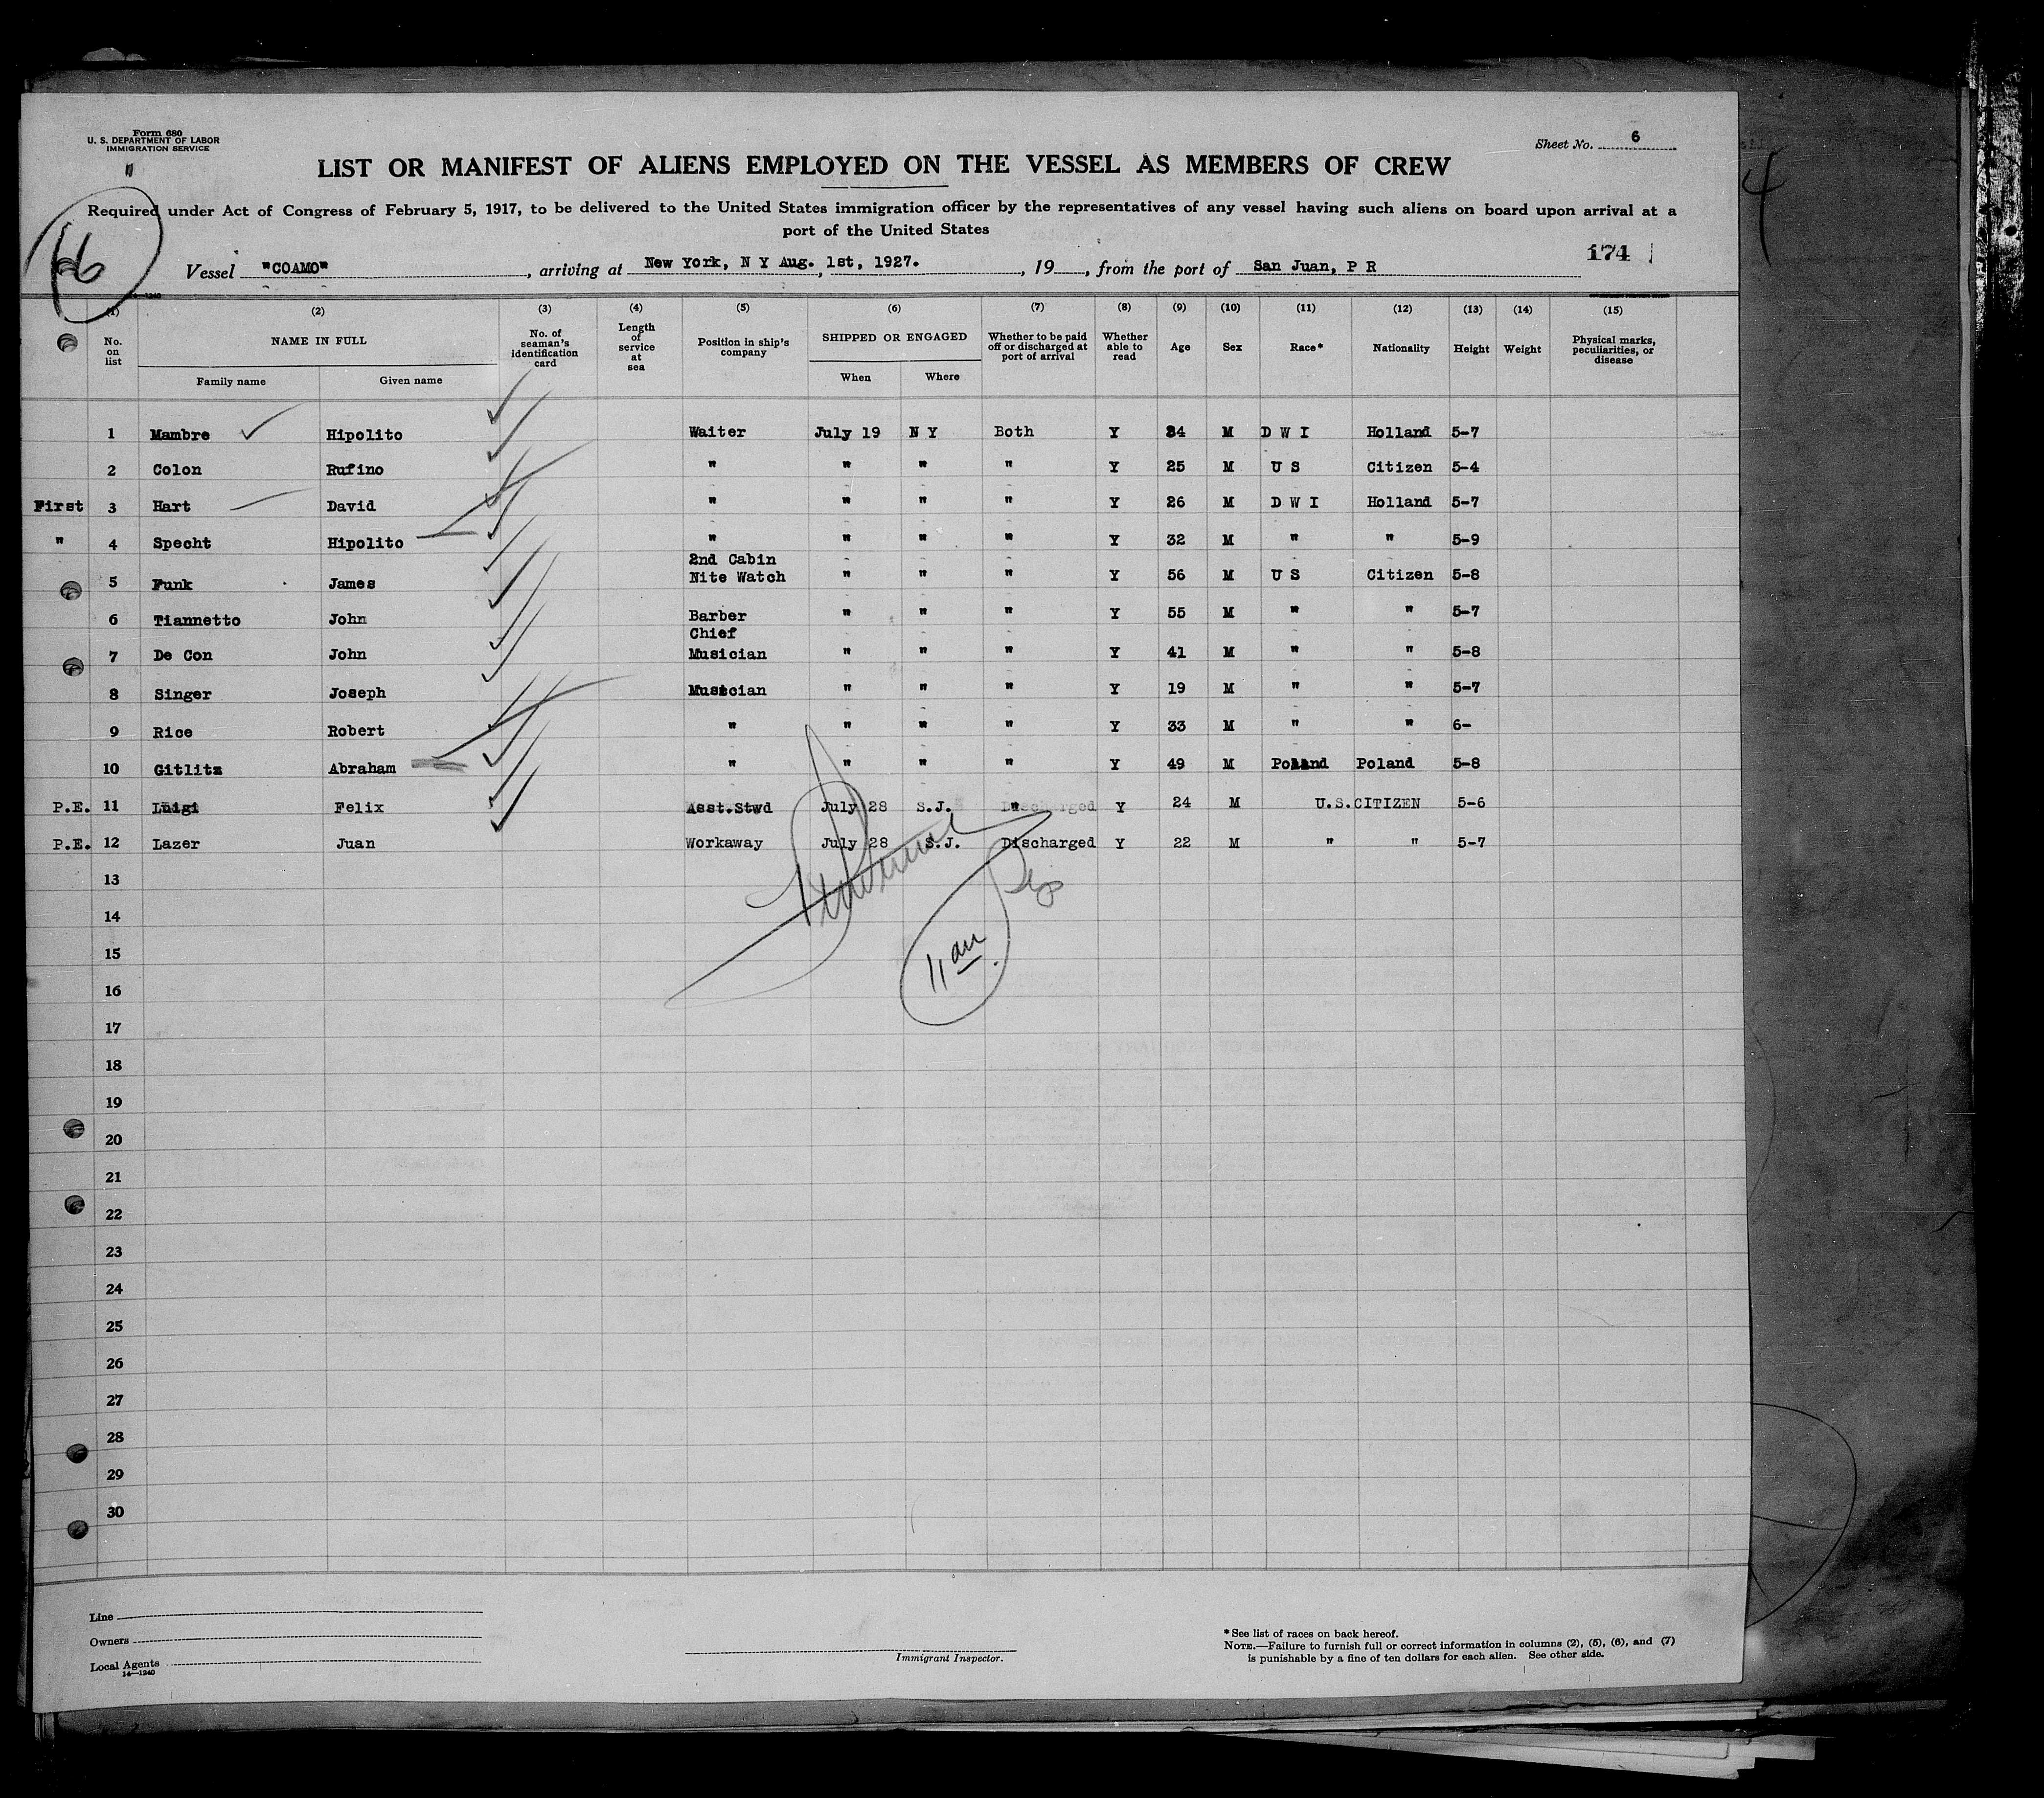 Form 680
U. S. DEPARTMENT OF LABOR
IMMIGRATION SERVICE
Sheet No. 6
LIST OR MANIFEST OF ALIENS EMPLOYED ON THE VESSEL AS MEMBERS OF CREW
Required under Act of Congress of February 5, 1917, to be delivered to the United States immigration officer by the representatives of any vessel having such aliens on board upon arrival at a
port of the United States
174
Vessel "COAMO", arriving at New York, N Y Aug. 1st, 1927., 19, from the port of San Juan, P R
14—1240
(1) (2) (3) (4) (5) (6) (7) (8) (9) (10) (11) (12) (13) (14) (15)
No. on list NAME IN FULL No. of seaman's identification card Length of service at sea Position in ship's company SHIPPED OR ENGAGED Whether to be paid off or discharged at port of arrival Whether able to read Age Sex Race* Nationality Height Weight Physical marks, peculiarities, or disease
Family name Given name When Where
1 Mambre Hipolito Waiter July 19 N Y Both Y 34 M D W I Holland 5-7
2 Colon Rufino " " " " Y 25 M U S Citizen 5-4
First 3 Hart David " " " " Y 26 M D W I Holland 5-7
" 4 Specht Hipolito " " " " Y 32 M " " 5-9
5 Funk James 2nd Cabin Nite Watch " " " Y 56 M U S Citizen 5-8
6 Tiannetto John Barber " " " Y 55 M " " 5-7
7 De Con John Chief Musician " " " Y 41 M " " 5-8
8 Singer Joseph Musician " " " Y 19 M " " 5-7
9 Rice Robert " " " " Y 33 M " " 6-
10 Gitlitz Abraham " " " " Y 49 M Poland Poland 5-8
P.E. 11 Luigi Felix Asst.Stwd July 28 S.J. " Y 24 M U.S.CITIZEN 5-6
P.E. 12 Lazer Juan Workaway July 28 S.J. Discharged Y 22 M " " 5-7
13
14
11 am
15
16
17
18
19
20
21
22
23
24
25
26
27
28
29
30
Line
Owners
Local Agents
14—1240
Immigrant Inspector.
* See list of races on back hereof.
NOTE.—Failure to furnish full or correct information in columns (2), (5), (6), and (7)
is punishable by a fine of ten dollars for each alien. See other side.